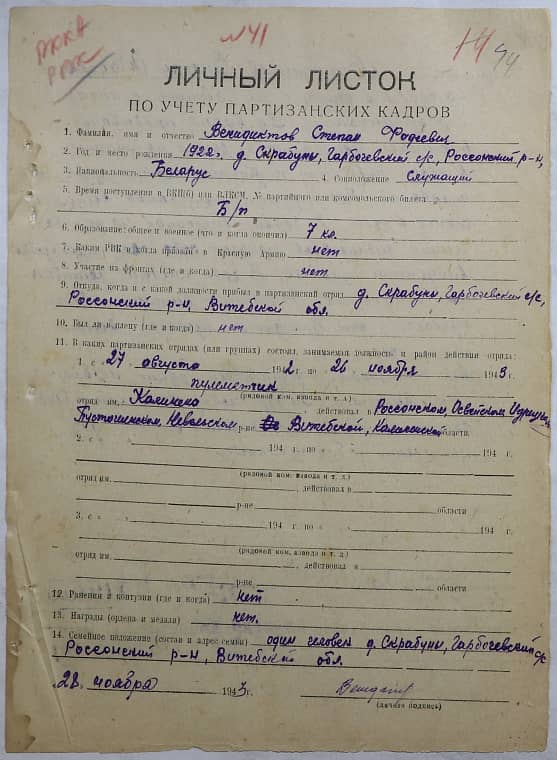 РККА
РВК
№41
94
ЛИЧНЫЙ ЛИСТОК
ПО УЧЕТУ ПАРТИЗАНСКИХ КАДРОВ
1. Фамилия, имя и отчество Венидиктов Степан Фадеевич
2. Год и место рождения 1922г. д. Скрабуны, Гарбочевский с/с, Россонский р-н,
3. Национальность Беларус 4. Соцположение Служащий
5. Время поступления в ВКП(б) или ВЛКСМ, № партийного или комсомольского билета
Б/п
6. Образование: общее и военное (что и когда окончил) 7 кл.
7. Каким РВК и когда призван в Красную Армию нет
8. Участие на фронтах (где и когда) нет
9. Откуда, когда и с какой должности прибыл в партизанский отряд д. Скрабуны, Гарбочевский с/с,
Россонский р-н, Витебской обл.
10. Был ли в плену (где и когда) нет
11. В каких партизанских отрядах (или группах) состоял, занимаемая должность и район действия отряда:
1. с 27 августа 1942 по 26 ноября 1943г.
пулеметчик
(рядовой ком. взвода и т. д.)
отряд им. Калинина, действовал в Россонском, Освейском,
Пустошенском, Невельском р-не Витебской, Калининской области.
2. с „ 194 г. по „ 194 г.
(рядовой ком. взвода и т. д.)
отряд им. , действовал в
р-не области
3. с „ 194 г. по „ 194 г.
(рядовой ком. взвода и т. д.)
отряд им. , действовал в
р-не области
12. Ранения и контузии (где и когда) нет
13. Награды (ордена и медали) нет.
14. Семейное положение (состав и адрес семьи) один человек д. Скрабуны, Гарбочевский с/с
Россонский р-н, Витебской обл.
28. ноября 1943г.
(личная подпись)